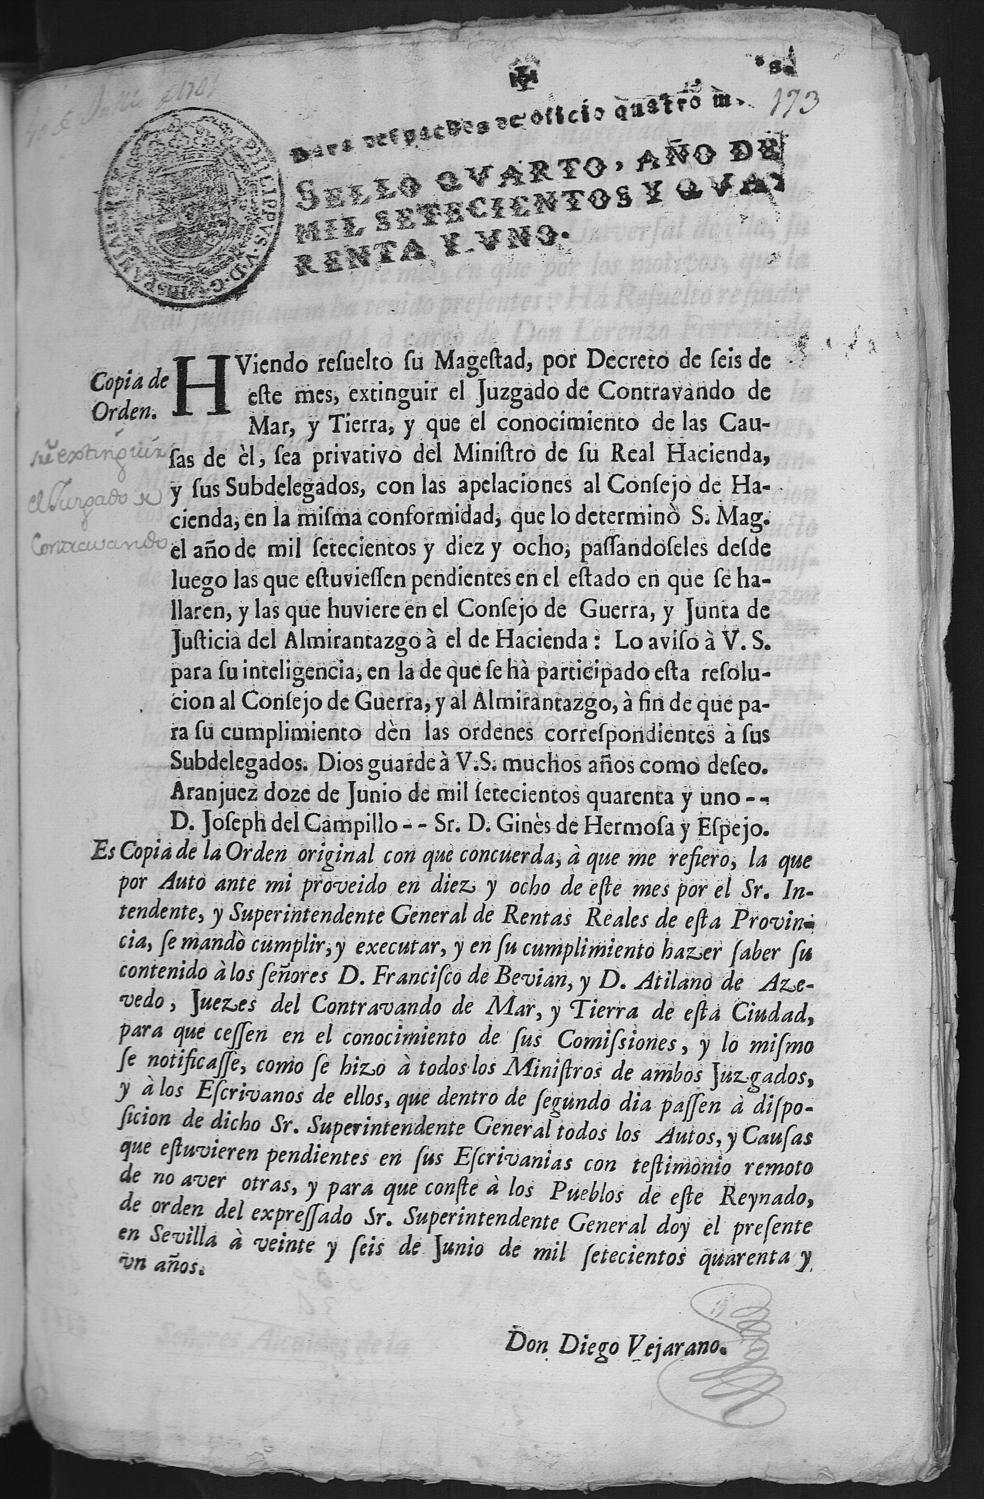 173
Para despachos de oficio quatro m.
SELLO QVARTO, AÑO DE
MIL SETECIENTOS Y QVA
RENTA Y VNO.
PHILIPPVS V D G HISPANIAR REX
Copia de
Orden.
se extinguir
el Juzgado de
Contravando
HViendo resuelto su Magestad, por Decreto de seis de
este mes, extinguir el Juzgado de Contravando de
Mar, y Tierra, y que el conocimiento de las Cau-
sas de èl, sea privativo del Ministro de su Real Hacienda,
y sus Subdelegados, con las apelaciones al Consejo de Ha-
cienda, en la misma conformidad, que lo determinò S. Mag.
el año de mil setecientos y diez y ocho, passandoseles desde
luego las que estuviessen pendientes en el estado en que se ha-
llaren, y las que huviere en el Consejo de Guerra, y Junta de
Justicia del Almirantazgo à el de Hacienda: Lo aviso à V. S.
para su inteligencia, en la de que se hà participado esta resolu-
cion al Consejo de Guerra, y al Almirantazgo, à fin de que pa-
ra su cumplimiento dèn las ordenes correspondientes à sus
Subdelegados. Dios guarde à V.S. muchos años como deseo.
Aranjuez doze de Junio de mil setecientos quarenta y uno--
D. Joseph del Campillo-- Sr. D. Ginès de Hermosa y Espejo.
Es Copia de la Orden original con que concuerda, à que me refiero, la que
por Auto ante mi proveido en diez y ocho de este mes por el Sr. In-
tendente, y Superintendente General de Rentas Reales de esta Provin-
cia, se mandò cumplir, y executar, y en su cumplimiento hazer saber su
contenido à los señores D. Francisco de Bevian, y D. Atilano de Aze-
vedo, Juezes del Contravando de Mar, y Tierra de esta Ciudad,
para que cessen en el conocimiento de sus Comissiones, y lo mismo
se notificasse, como se hizo à todos los Ministros de ambos Juzgados,
y à los Escrivanos de ellos, que dentro de segundo dia passen à dispo-
sicion de dicho Sr. Superintendente General todos los Autos, y Causas
que estuvieren pendientes en sus Escrivanias con testimonio remoto
de no aver otras, y para que conste à los Pueblos de este Reynado,
de orden del expressado Sr. Superintendente General doy el presente
en Sevilla à veinte y seis de Junio de mil setecientos quarenta y
vn años.
Don Diego Vejarano.